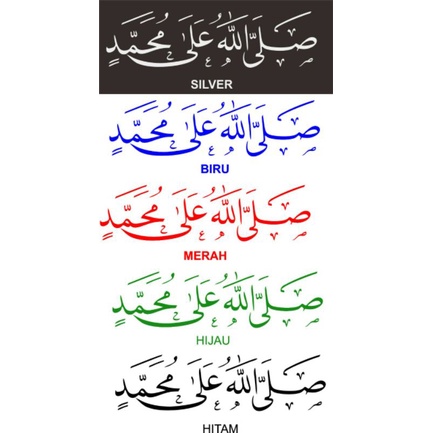 صَلَّى اللهُ عَلَى مُحَمَّدٍ
SILVER
صَلَّى اللهُ عَلَى مُحَمَّدٍ
BIRU
صَلَّى اللهُ عَلَى مُحَمَّدٍ
MERAH
صَلَّى اللهُ عَلَى مُحَمَّدٍ
HIJAU
صَلَّى اللهُ عَلَى مُحَمَّدٍ
HITAM